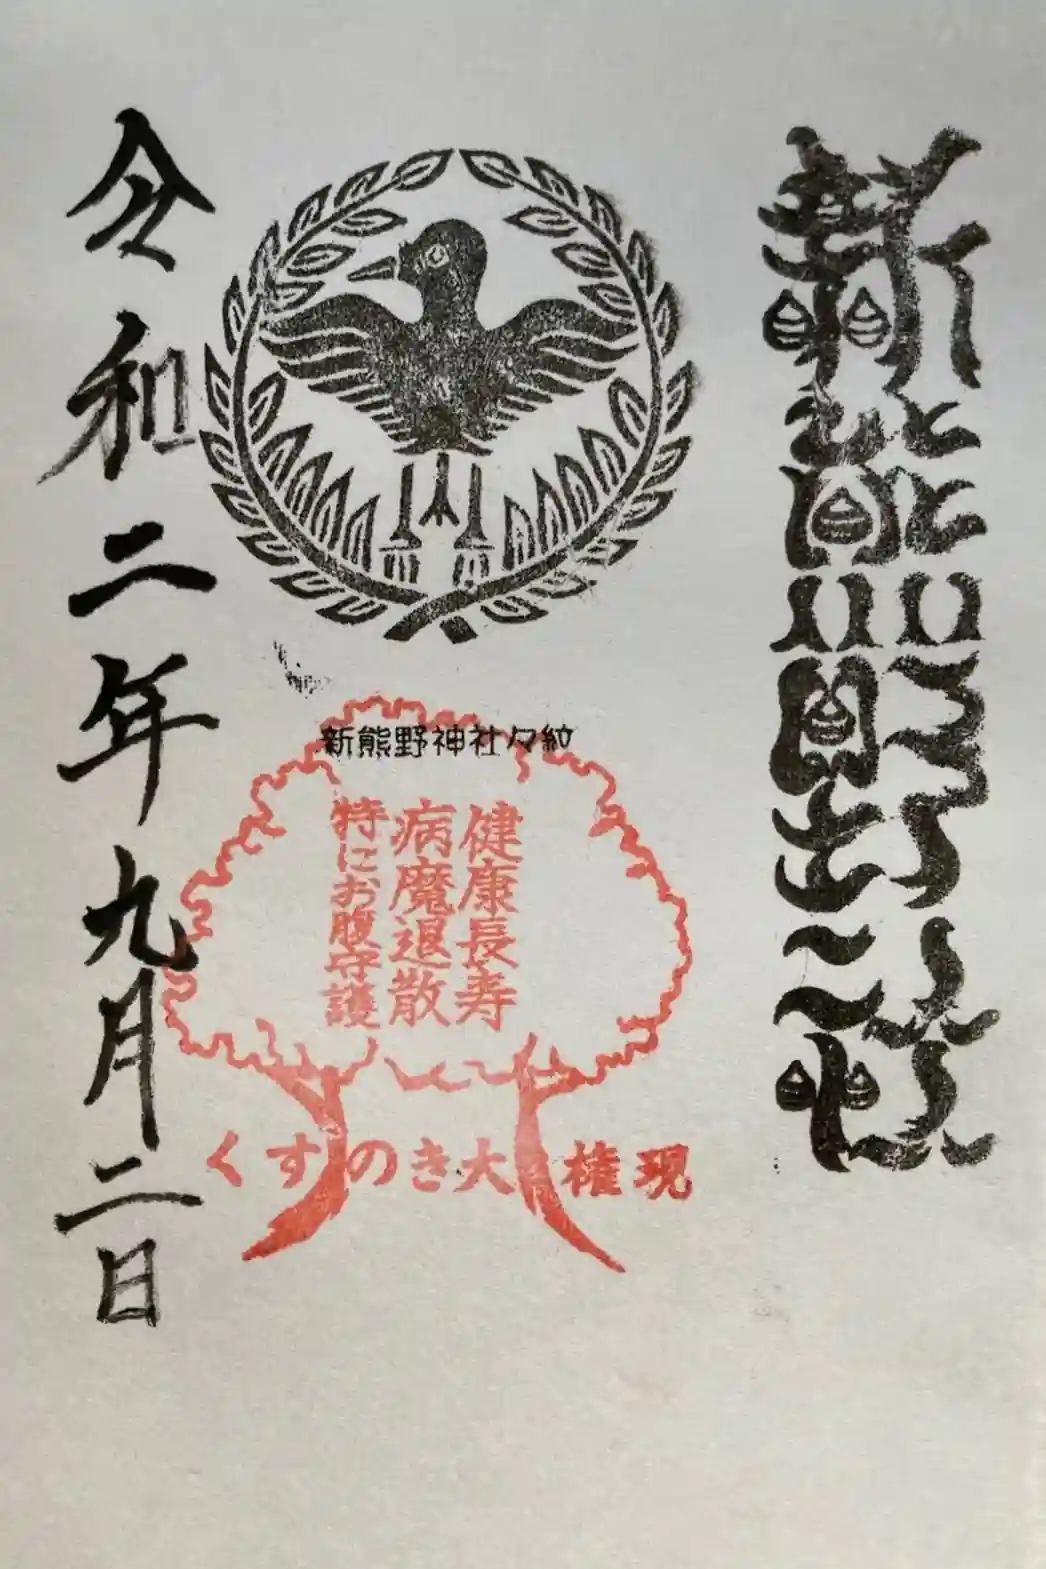 新熊野神社
新熊野神社夕紋
健康長寿
病魔退散
特にお腹守護
くすのき大権現
令和二年九月二日